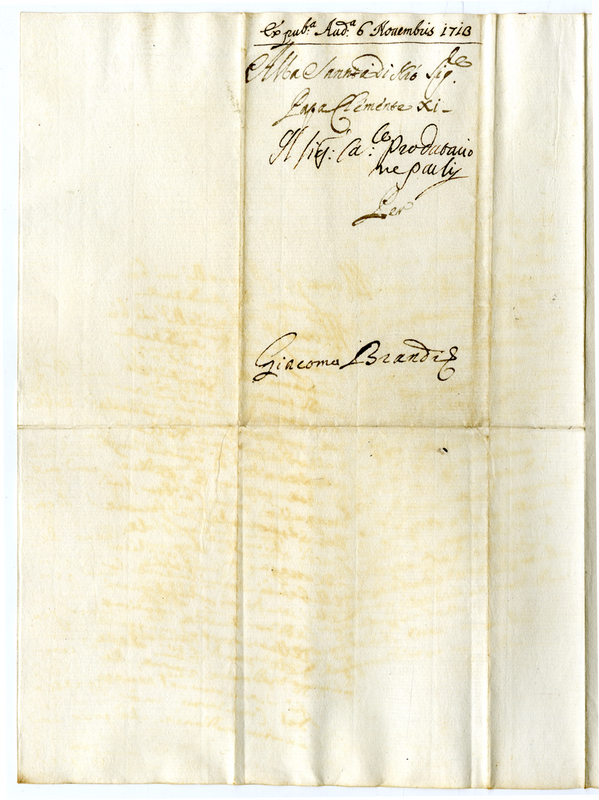 Ex pub.ª Aud.ª 6 Novembris 1713
Alla Santità di Nrõ Sig.re
Papa Clemente XI -
Il sig: Ca:le Prodatario
ne parli
Per
Giacomo Brandi